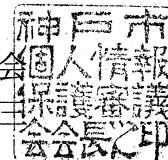 神戸市
個人情報
保護審議
会会長之印
会
三